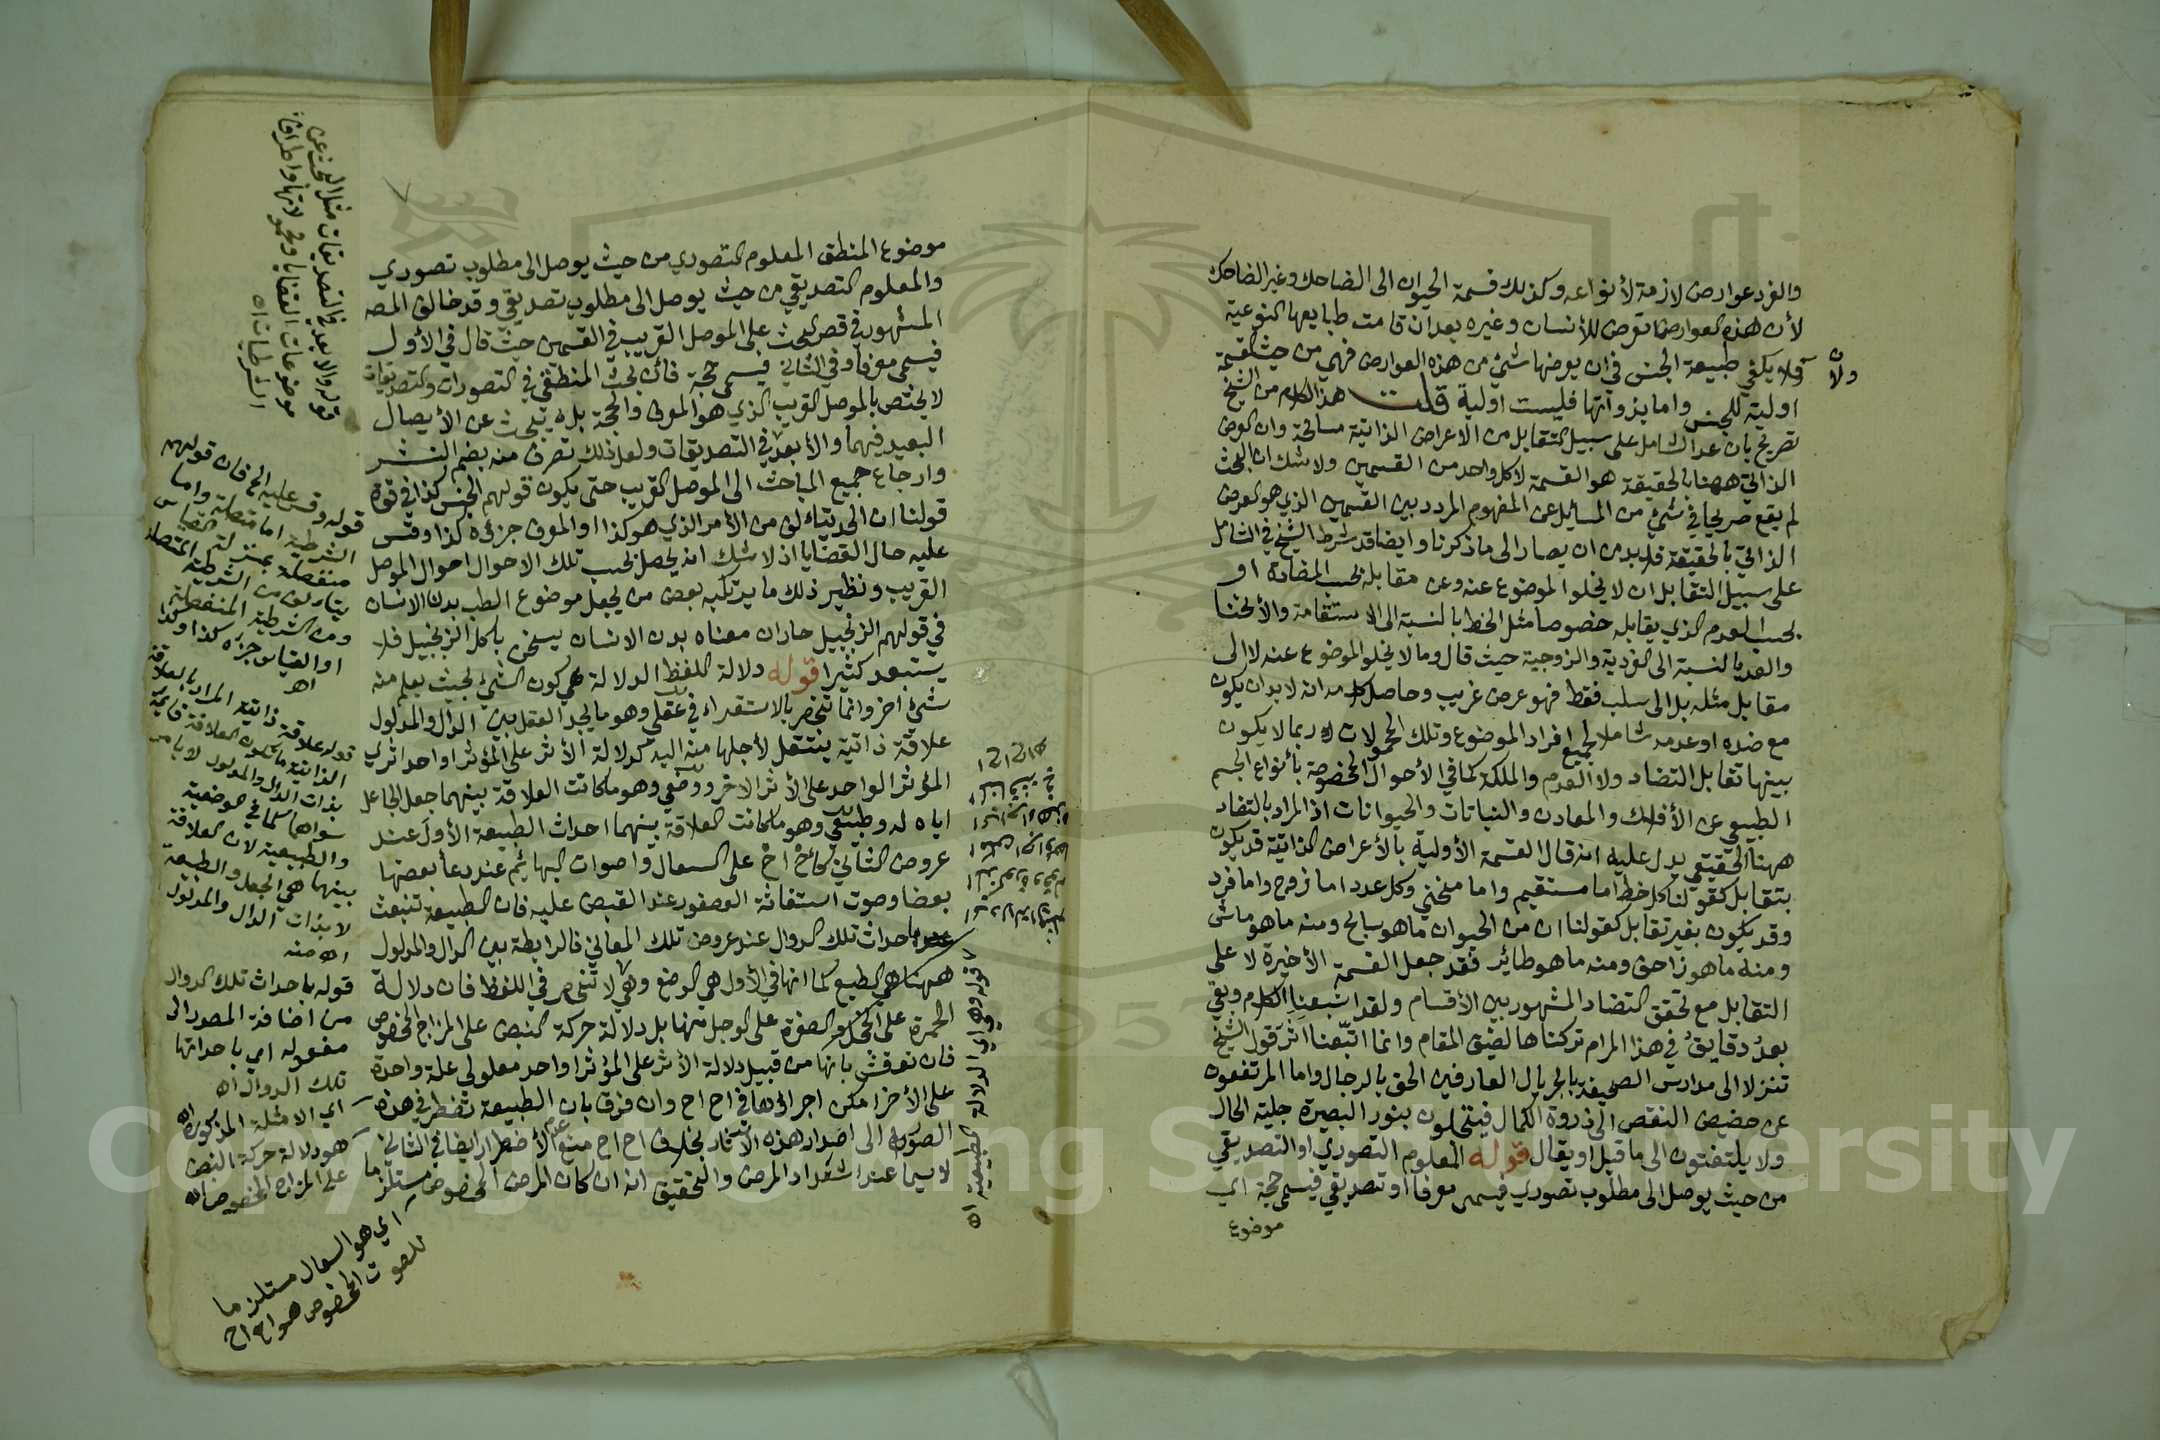 والفرد عوارض لازمة لأنواعه وكذلك قسمة الحيوان الى الضاحك وغير الضاحك
لأن هذه العوارض تعرض للأنسان وغيره بعد ان قامت طبايعها النوعية
ولا يكفي طبيعة الجنس في ان يعرضها شئ من هذه العوارض فهي من حيث القسمة
ولان
اولية للجنس واما بذواتها فليست اولية قلت هذا الكلام من الشيخ
تصريح بان عد الشامل على سبيل التقابل من الاعراض الذاتية مسامحة وان العرض
الذاتي ههنا بالحقيقة هو القسمة لا كل واحد من القسمين ولا شك ان البحث
لم يقع صريحا في شئ من المسايل عن المفهوم المردد بين القسمين الذي هو العرض
الذاتي بالحقيقة فلا بد من ان يصار الى ما ذكرنا وايضا قد شرط الشيخ في الشامل
على سبيل التقابل ان لا يخلوا الموضوع عنه وعن مقابله بحسب المضادة او
بحسب العدم الذي يقابله خصوصا مثل الخط بالنسبة الى الاستقامة والأنحنا
والعدد بالنسبة الى الفردية والزوجية حيث قال وما لا يخلو الموضوع عنه لا الى
مقابل مثله بل الى سلب فقط فهو عرض غريب وحاصل كلامه انه لا بد ان يكون
مع ضده او عدمه شاملا لجميع افراد الموضوع وتلك المحمولات ربما لا يكون
بينها تقابل التضاد ولا العدم والملكة كما في الأحوال المخصوصة بأنواع الجسم
الطبيعي من الأفلاك والمعادن والنباتات والحيوانات اذ المراد بالتضاد
ههنا الحقيقي يدل عليه انه قال القسمة الأولية بالأعراض الذاتية قد يكون
بتقابل كقولنا كل خط اما مستقيم واما منحني وكل عدد اما زوج واما فرد
وقد يكون بغير تقابل كقولنا ان من الحيوان ما هو سابح ومنه ما هو ماش
ومنه ما هو زاحف ومنه ما هو طائر فقد جعل القسمة الأخيرة لا على
التقابل مع تحقق التضاد المشهور بين الأقسام ولقد اشبعنا الكلام وبقي
بعد دقايق في هذا المرام تركناها لضيق المقام وانما اتبعنا اثر قول الشيخ
تنزلا الى مدارس الصحيفة بالجريال العارفين الحق بالرجال واما المرتفعون
عن حضيض النقص الى ذروة الكمال فيتجلون بنور البصيرة جلية الحال
ولا يلتفتون الى ما قيل او يقال قوله المعلوم التصوري او التصديقي
من حيث يوصل الى مطلوب تصوري فيسمى معرفا او تصديقي فيسمى حجة اي
موضوع
موضوع المنطق المعلوم التصوري من حيث يوصل الى مطلوب تصوري
والمعلوم التصديقي من حيث يوصل الى مطلوب تصديقي وقد خالف المصه
المشهور في قصر البحث على الموصل القريب في القسمين حيث قال في الأول
فيسمى معرفا وفي الثاني فيسمى حجة فان بحث المنطقي في التصورات والتصديقات
لا يختص بالموصل القريب الذي هو المعرف والحجة بل يبحث عن الأيصال
البعيد فيهما والأبعد في التصديقات ولعل ذلك تصرف منه بضم النشر
وارجاع جميع المباحث الى الموصل القريب حتى يكون قولهم الجنس كذا في قوة
قولنا ان الحد يتالف من الأمر الذي هو كذا او المعرف جزؤه كذا وقس
عليه حال القضايا اذ لا شك انه يحصل بحسب تلك الاحوال احوال الموصل
القريب ونظير ذلك ما يرتكبه بعض من يجعل موضوع الطب بدن الانسان
في قولهم الزنجبيل حار ان معناه بدن الانسان يسخن باكل الزنجبيل فلا
يستبعد كثيرا قوله دلالة اللفظ الدلالة هي كون الشئ بحيث يعلم منه
شئ اخر وانما تنحصر بالاستقراء في عقلي وهو ما يجد العقل بين الدال والمدلول
علاقة ذاتية ينتقل لأجلها منه اليه كدلالة الأثر على المؤثر او احد اثري
المؤثر الواحد على الأثر الاخر ووضعي وهو ما كانت العلاقة بينهما جعل الجاعل
اياه له وطبيعي وهو ما كانت العلاقة بينهما احداث الطبيعة الأول عند
عروض الثاني كأح اح على السعال واصوات البهائم عند دعا بعضها
بعضا وصوت استغاثة العصفور عند القبض عليه فان الطبيعة تنبعث
باحداث تلك الدوال عند عروض تلك المعاني فالرابطة بين الدال والمدلول
ههنا هي الطبع كما انها في الأول هي الوضع وهي لا تنحصر في اللفظ فان دلالة
الحمرة على الخجل والصفرة على الوجل منها بل دلالة حركة النبض على المزاج المخصوص
فان نوقش بانها من قبيل دلالة الأثر على المؤثر او احد معلولي علة واحدة
على الأخر امكن اجراؤها في اح اح وان فرق بان الطبيعة تضطر في هذه
الصورة الى اصدار هذه الآثار بخلاف اح اح منع عدم الأضطرار ايضا في الثاني
لا سيما عند اشتداد المرض والتحقيق انه ان كان المرض المخصوص مستلزما
قوله والابعد في التصديقات مثل البحث عن
موضوعات القضايا ومحمولاتها واطراف
الشرطيات اه
قوله وقس عليه الخ فان قولهم
الشرطية اما متصلة واما
منفصلة بمنزلة القياس
يتألف من الشرطية المتصلة
ومن الشرطية المنفصلة
او القياس جزءه كذا وكذا
اه
قوله علاقة ذاتية المراد بالعلاقة
الذاتية ما تكون العلاقة قائمة
بذات الدال والمدلول لا بامر
سواهما كما في الوضعية
والطبيعية لان العلاقة
بينهما هي الجعل والطبيعة
لا بذات الدال والمدلول
اه منه
قوله باحداث تلك الدوال
من اضافة المصدر الى
مفعوله اي باحداثها
تلك الدوال اه
اي الامثلة المذكورة اه
هو دلالة حركة النبض
على المزاج المخصوص اه
اي هو السعال مستلزما
للصوت المخصوص هو اح اح
قوله وهي اي الدلالة الطبيعية اه
Copyright © King Saud University
1957